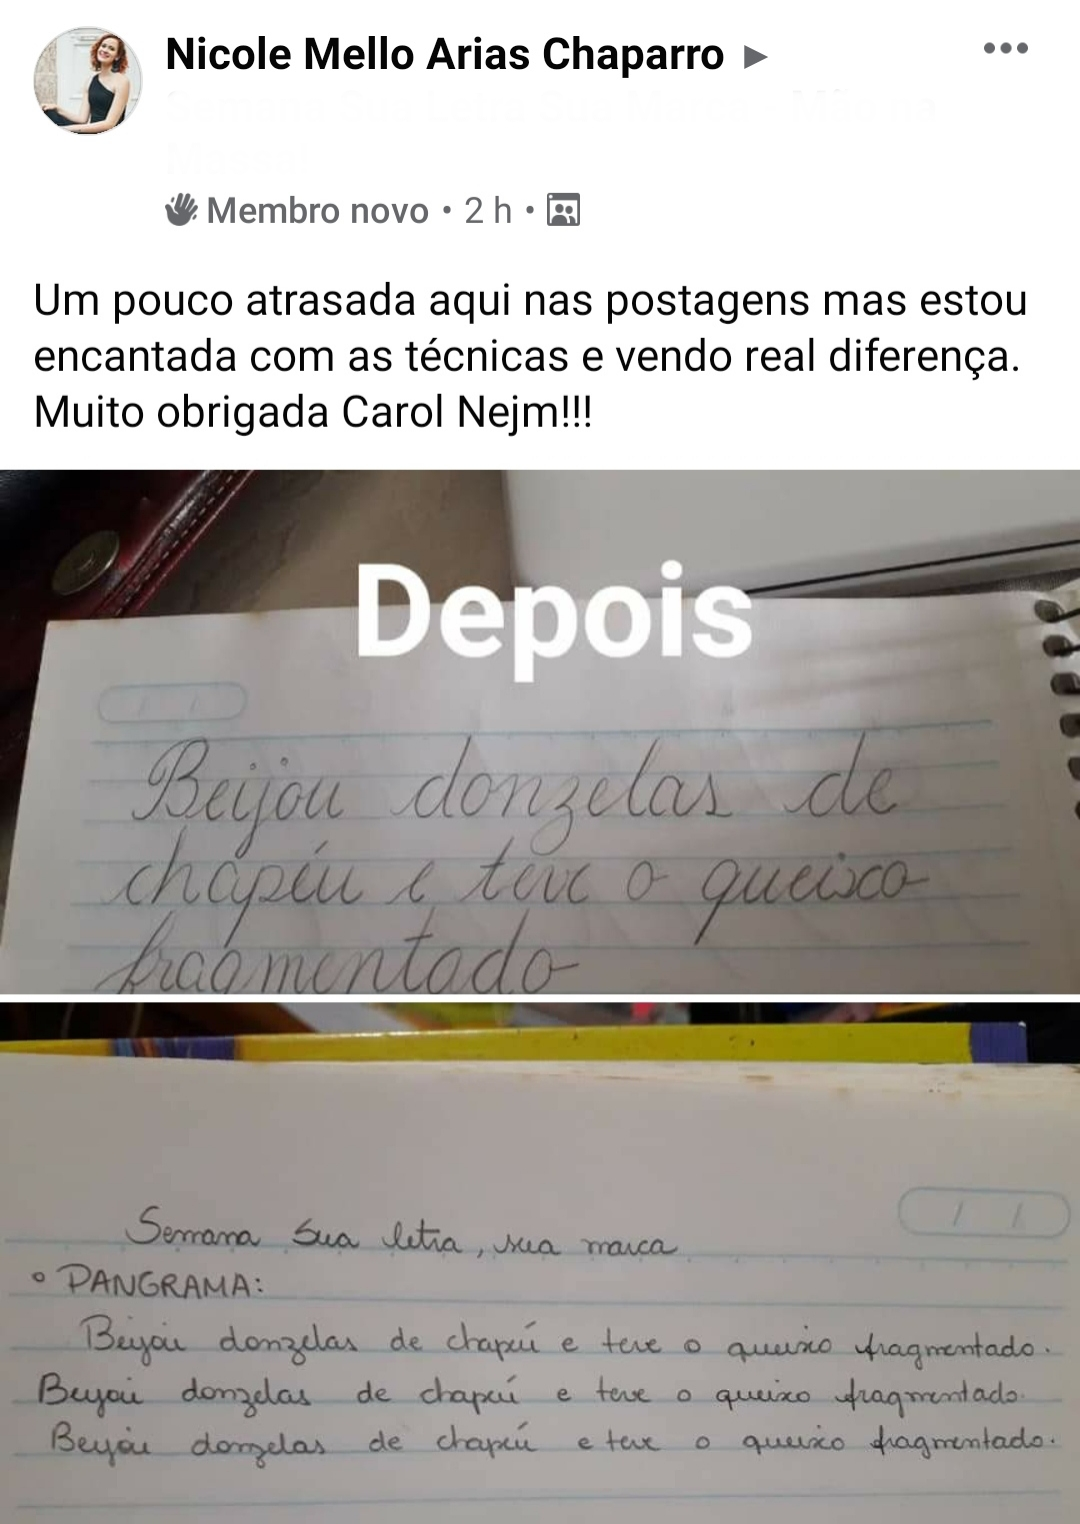 Nicole Mello Arias Chaparro ▶
Membro novo • 2 h •
Um pouco atrasada aqui nas postagens mas estou
encantada com as técnicas e vendo real diferença.
Muito obrigada Carol Nejm!!!
Depois
Beijou donzelas de
chapéu e teve o queixo
fragmentado
Semana Sua letra, sua marca
° PANGRAMA:
Beijou donzelas de chapéu e teve o queixo fragmentado.
Beijou donzelas de chapéu e teve o queixo fragmentado.
Beijou donzelas de chapéu e teve o queixo fragmentado.